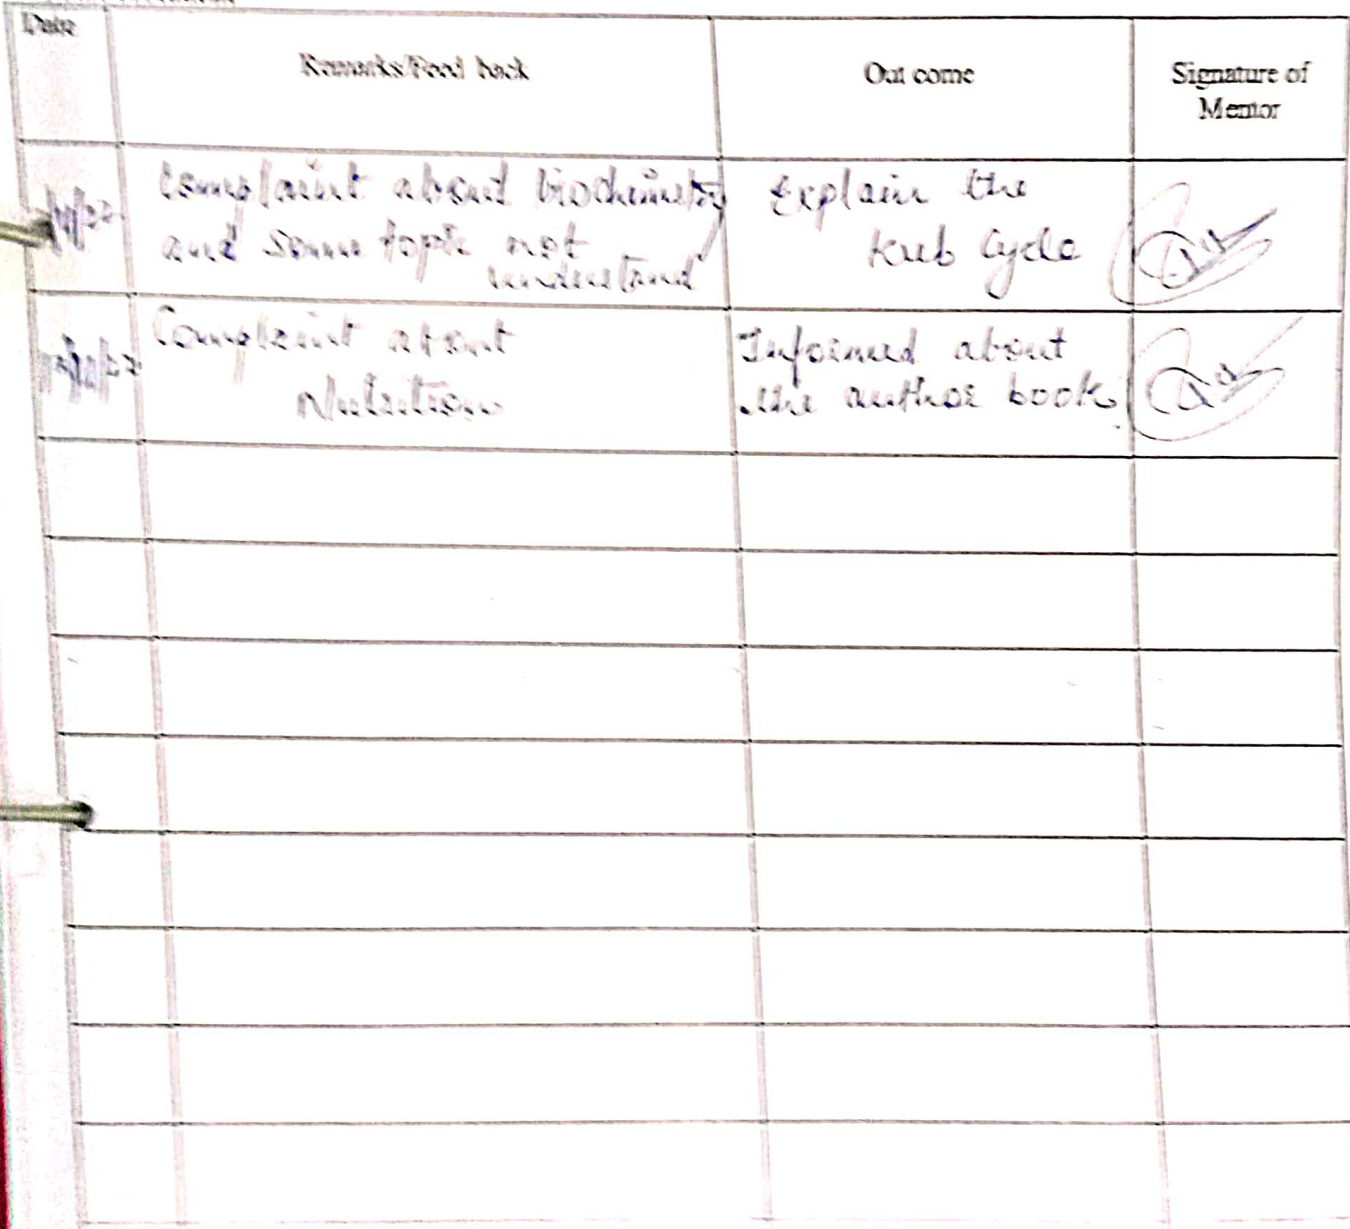 Date
Remarks/Feed back
Out come
Signature of
Mentor
Complaint about biochemistry
and some topic not
understand
Explain the
Kreb Cycle
Complaint about
Nutrition
Informed about
the author book